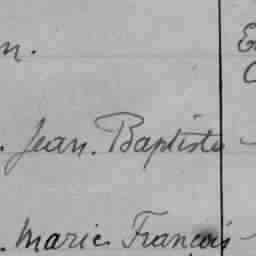 n.
. Jean. Baptiste -
. Marie François -